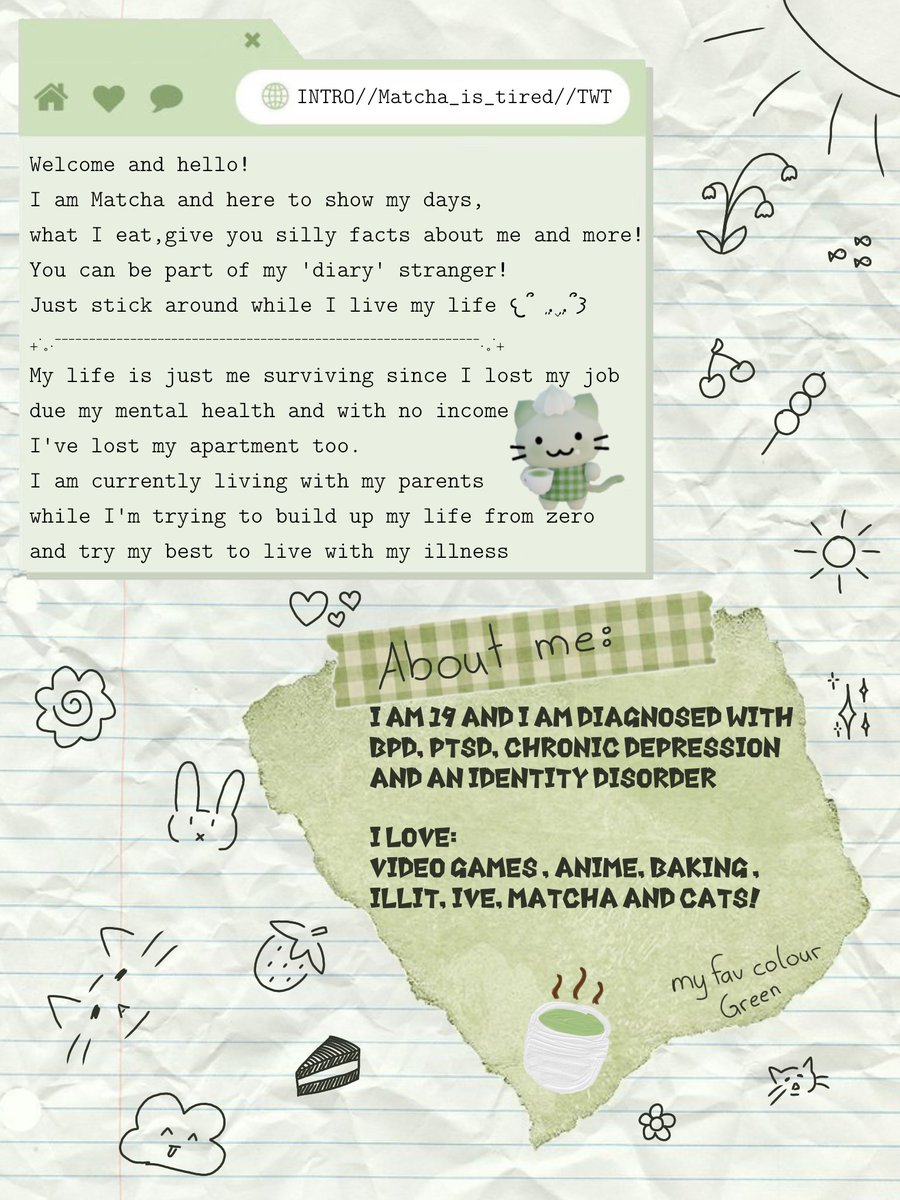 INTRO//Matcha_is_tired//TWT
Welcome and hello!
I am Matcha and here to show my days,
what I eat,give you silly facts about me and more!
You can be part of my 'diary' stranger!
Just stick around while I live my life
My life is just me surviving since I lost my job
due my mental health and with no income
I've lost my apartment too.
I am currently living with my parents
while I'm trying to build up my life from zero
and try my best to live with my illness
About me:
I AM 19 AND I AM DIAGNOSED WITH
BPD, PTSD, CHRONIC DEPRESSION
AND AN IDENTITY DISORDER
I LOVE:
VIDEO GAMES , ANIME, BAKING ,
ILLIT, IVE, MATCHA AND CATS!
my fav colour
Green